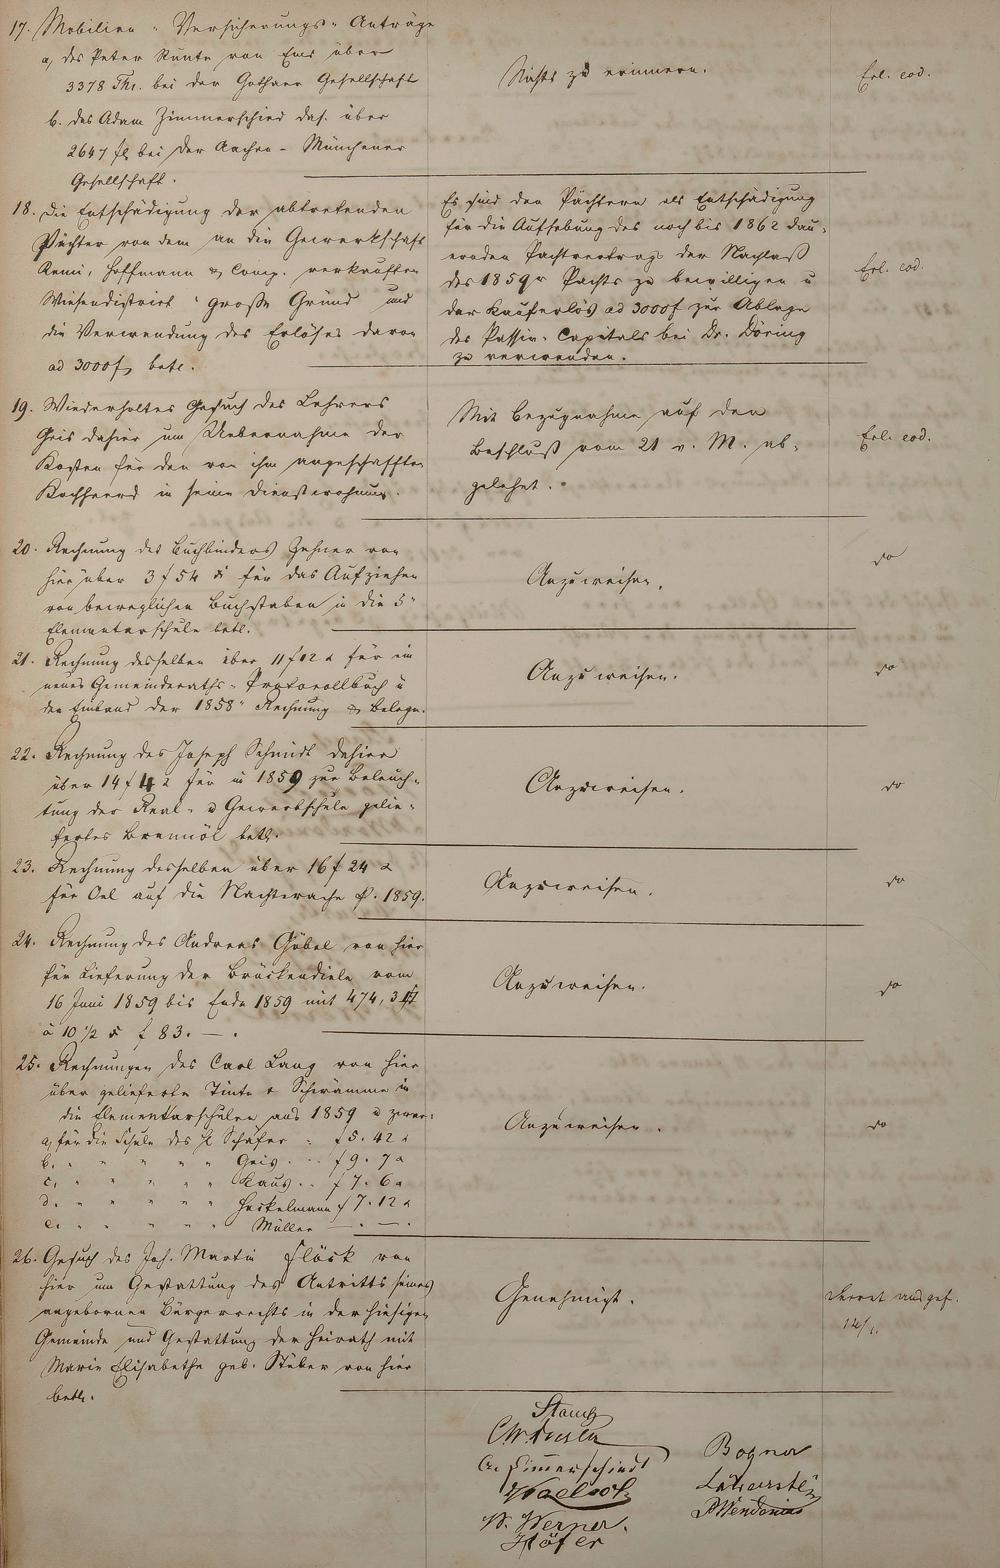 17. Mobilien - Versicherungs - Anträge
a, des Peter Runte von Ems über
3378 Thr. bei der Gothaer Gesellschaft
b. des Adam Zimmerschied das. über
2647 fl bei der Aachen - Münchener
Gesellschaft.
Nichts zu erinnern.
Erl. eod.
18. Die Entschädigung der abtretenden
Pächter von dem an die Gewerkschaft
Remi, Hoffmann & Comp. verkauften
Wiesendistrict "große Gründ" und
die Verwendung des Erlöses davon
ad 3000 f betr.
Es sind den Pächtern als Entschädigung
für die Aufhebung des noch bis 1862 dau-
ernden Pachtvertrags der Nachlaß
des 1859r Pachts zu bewilligen u
der Kauferlös ad 3000 f zur Ablage
des Passiv-Capitals bei Dr. Döring
zu verwenden.
Erl. eod.
19. Wiederholtes Gesuch des Lehrers
Geis dahier um Uebernahme der
Kosten für den von ihm angeschafften
Kochheerd in seine Dienstwohnung.
Mit Bezugnahme auf den
Beschluß vom 21 v. M. ab-
gelehnt.
Erl. eod.
20. Rechnung des Buchbinders Zehner von
hier über 3 f 54 x für das Aufziehen
von beweglichen Buchstaben in die 5"
Elementarschule betr.
Anzuweisen.
do
21. Rechnung desselben über 11 f 12 x für ein
neues Gemeinderaths-Protocollbuch u
den Einband der 1858r Rechnung & Belege.
Anzuweisen.
do
22. Rechnung des Joseph Schmidt dahier
über 14 f 42 x für in 1859 zur Beleuch-
tung der Real- u Gewerbschule gelie-
fertes Brennöl betr.
Anzuweisen.
do
23. Rechnung desselben über 16 f 24 x
für Oel auf die Nachtwache p. 1859.
Anzuweisen.
do
24. Rechnung des Andreas Göbel von hier
für Lieferung der Brückendiele vom
16 Juni 1859 bis Ende 1859 mit 474,3
à 10 1/2 x f 83. — .
Anzuweisen.
do
25. Rechnungen des Carl Lang von hier
über gelieferte Tinte & Schwämme in
die Elementarschulen aus 1859 u zwar:
a, für die Schule des H Schäfer - f 5. 42 x
b. " " " " " Geis. .. f 9. 7 x
c, " " " " " Kaus. .. f 7. 6 x
d. " " " " " Heckelmann f 7. 12 x
e. " " " " " Müller — . — .
Anzuweisen.
do
26. Gesuch des Joh. Martin Flöck von
hier um Gestattung des Antritts seines
angebornen Bürgerrechts in der hiesigen
Gemeinde und Gestattung der Heirath mit
Marie Elisabethe geb. Stüber von hier
betr.
Genehmigt.
Decret ausgef.
14/1.
Stamm
Bogner
Zimmerschiedt
W. Werner.
Höfer